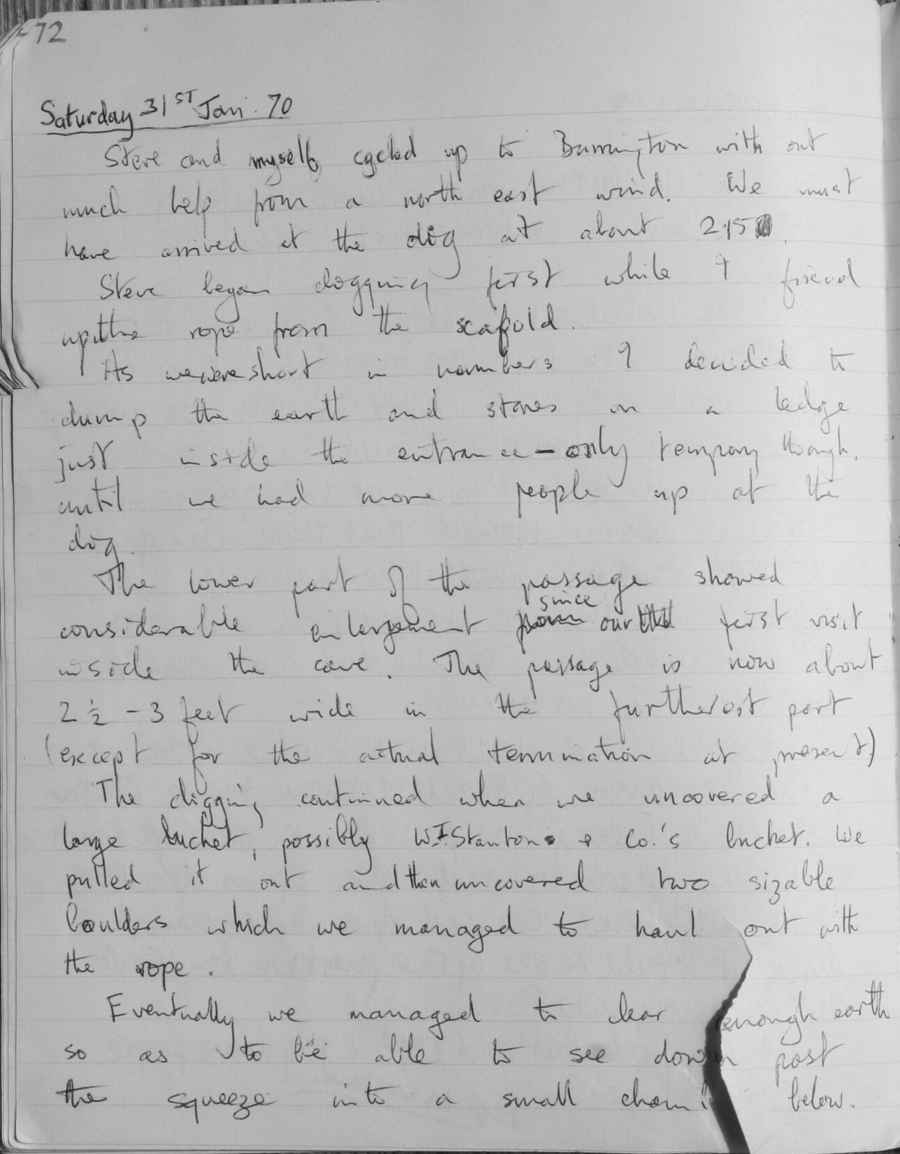 72
Saturday 31ST Jan. 70
Steve and myself, cycled up to Burrington with out
much help from a north east wind. We must
have arrived at the dig at about 215
Steve began digging first while I freed
up the rope from the scafold.
As we were short in numbers I decided to
dump the earth and stones on a ledge
just inside the entrance - only tempory though,
until we had more people up at the
dig.
The lower part of the passage showed
considerable enlargement since our first visit
inside the cave. The passage is now about
2½ - 3 feet wide in the furtherost part
(except for the actual termination at present)
The digging continued when we uncovered a
large bucket, possibly WIStantons & Co.'s bucket. We
pulled it out and then uncovered two sizable
boulders which we managed to haul out with
the rope.
Eventually we managed to clear enough earth
so as to be able to see down past
the squeeze into a small below.